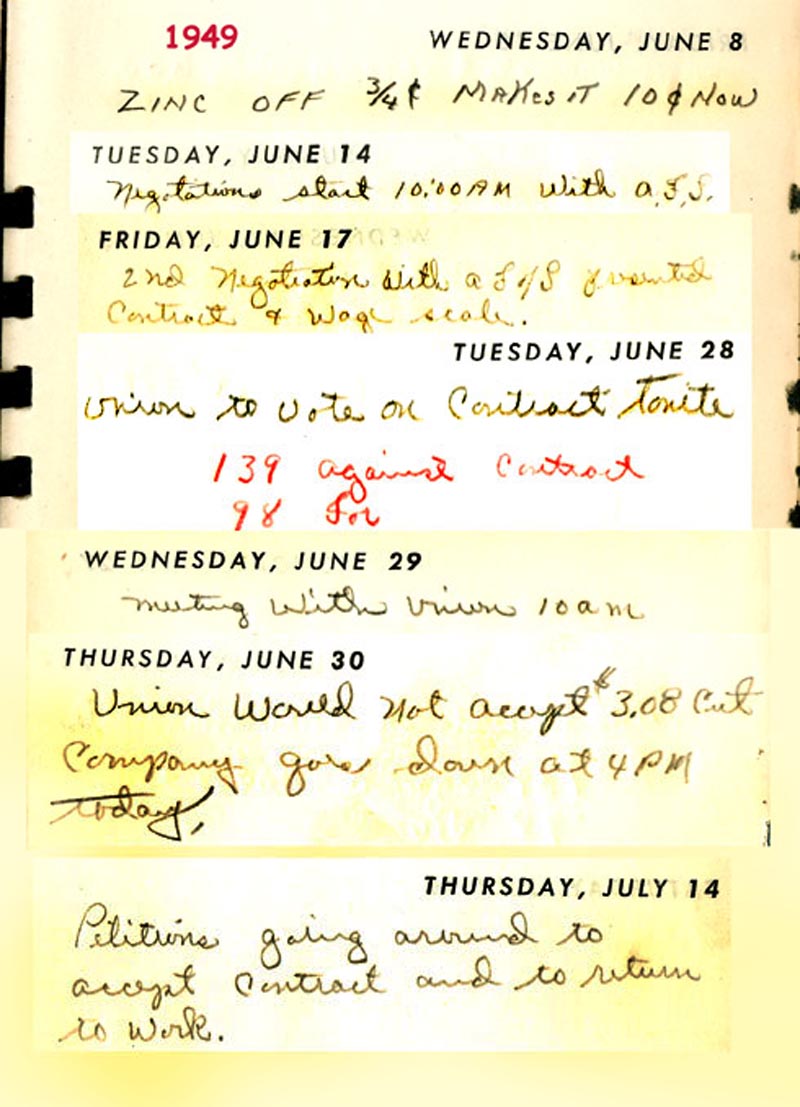 1949
WEDNESDAY, JUNE 8
ZINC OFF 3/4¢ MAKES IT 10¢ NOW
TUESDAY, JUNE 14
Negotations start 10:00 AM With a.S.S.
FRIDAY, JUNE 17
2nd Negotiation With a S of S presented
Contract & Wage scale.
TUESDAY, JUNE 28
Union to Vote on Contract Tonite
139 against Contract
98 For
WEDNESDAY, JUNE 29
meeting With Union 10 am
THURSDAY, JUNE 30
Union Would Not accept $3.08 Cut
Company goes down at 4 PM
today,
THURSDAY, JULY 14
Petitions going around to
accept Contract and to return
to Work.